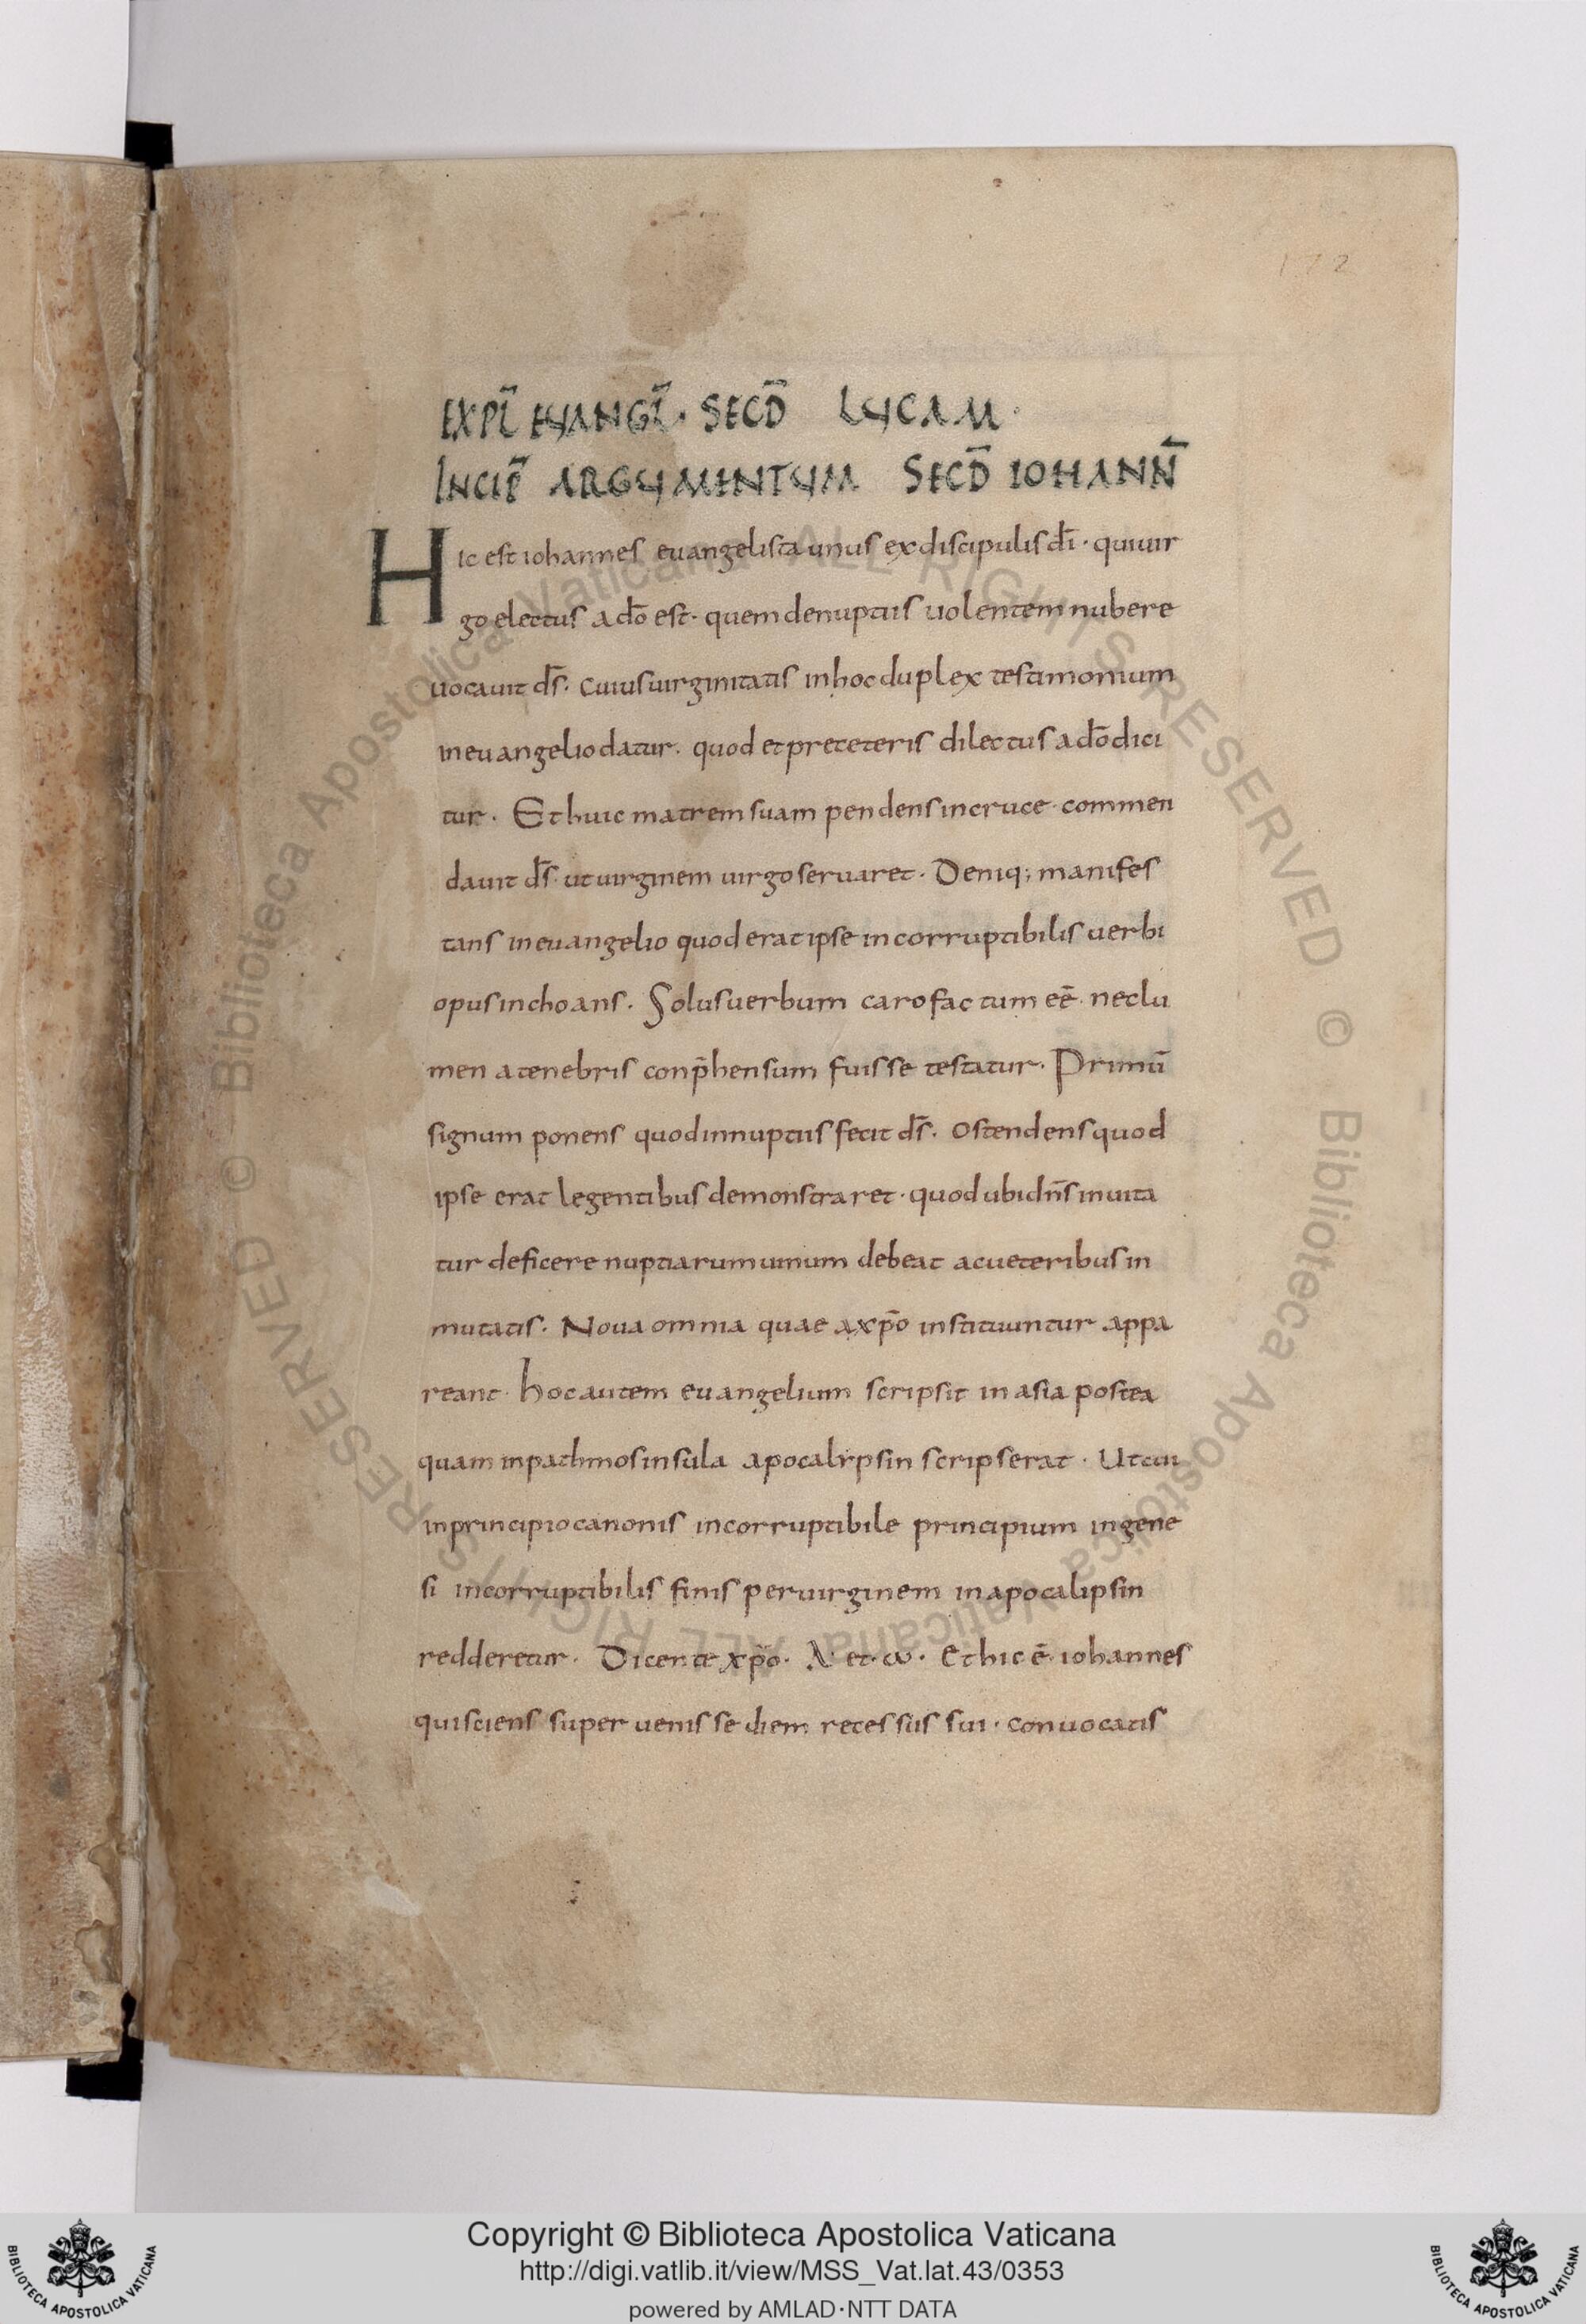 172
EXPL̄ EUANGL̄ · SECD̄ LUCAM ·
INCIP̄ ARGUMENTUM SECD̄ IOHANN̄
Hic est iohannes euangelista unus ex discipulis dī · qui uir
go electus a dō est · quem de nuptiis uolentem nubere
uocauit ds̄ · cuius uirginitatis in hoc duplex testimonium
in euangelio datur · quod et pre ceteris dilectus a dō dici
tur · Et huic matrem suam pendens in cruce · commen
dauit ds̄ · ut uirginem uirgo seruaret · Deniq; manifes
tans in euangelio quod erat ipse incorruptibilis uerbi
opus inchoans · Solus uerbum caro factum eē · nec lu
men a tenebris conp̄hensum fuisse testatur · Primū
signum ponens quod in nuptiis fecit ds̄ · ostendens quod
ipse erat legentibus demonstraret · quod ubi dn̄s inuita
tur deficere nuptiarum uinum debeat ac ueteribus in
mutatis · Noua omnia quae a xp̄o instituuntur appa
reant · hoc autem euangelium scripsit in asia postea
quam in pathmos insula apocalypsin scripserat · Ut cui
in principio canonis incorruptibile principium in gene
si incorruptibilis finis per uirginem in apocalipsin
redderetur · Dicente xp̄o · A · et · ω · Et hic ē iohannes
qui sciens superuenisse diem recessus sui · conuocatis
© Biblioteca Apostolica Vaticana ALL RIGHTS RESERVED © Biblioteca Apostolica Vaticana ALL RIGHTS RESERVED
Copyright © Biblioteca Apostolica Vaticana
http://digi.vatlib.it/view/MSS_Vat.lat.43/0353
powered by AMLAD·NTT DATA
BIBLIOTECA APOSTOLICA VATICANA
BIBLIOTECA APOSTOLICA VATICANA